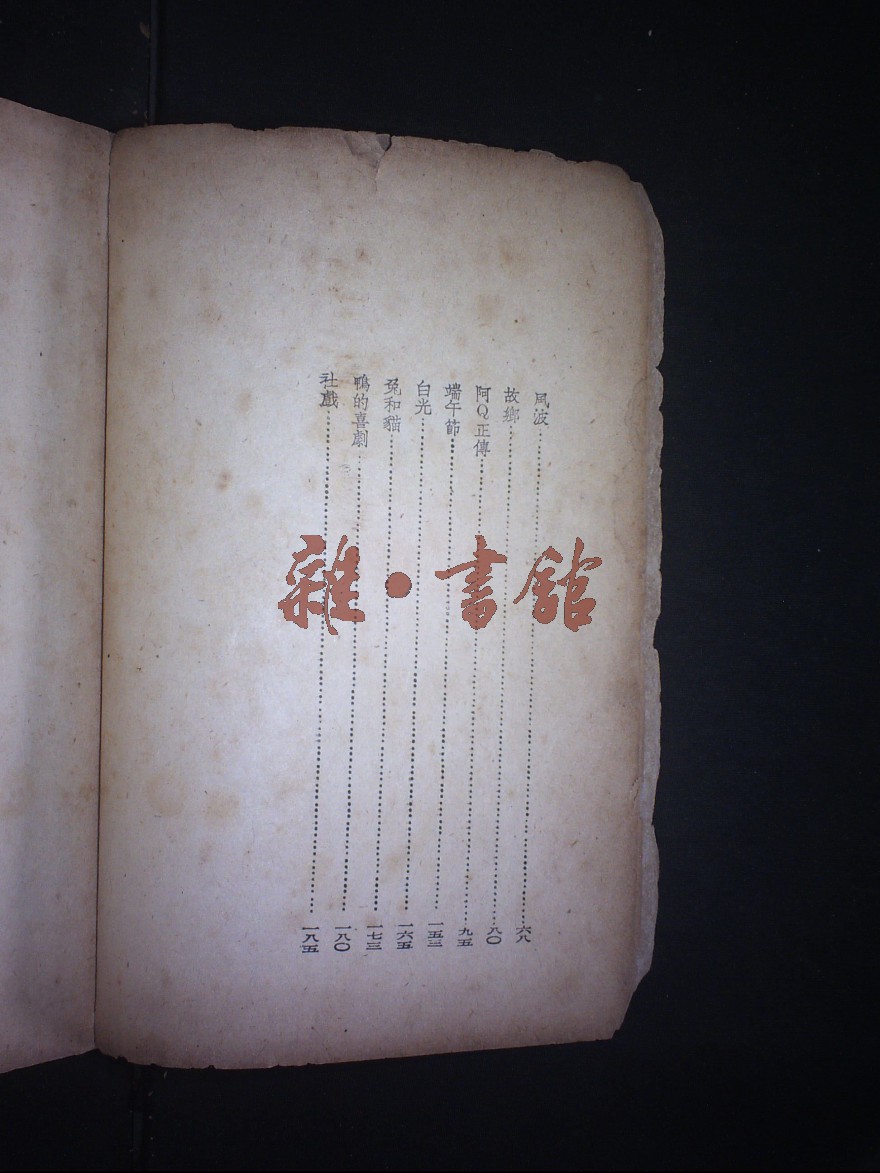 風波……六八
故鄉……八〇
阿Q正傳……九五
端午節……一五三
白光……一六五
兔和貓……一七三
鴨的喜劇……一八〇
社戲……一八五
雜・書館